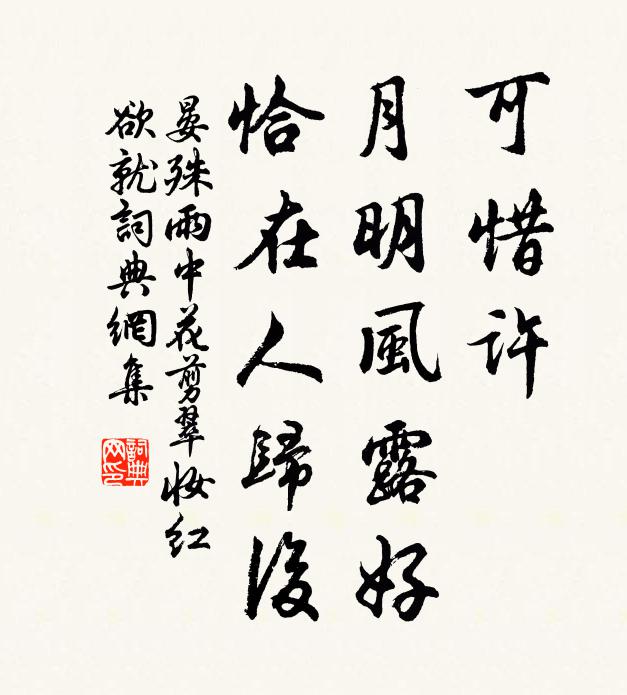 可惜許
月明風露好
恰在人歸後
晏殊雨中花剪翠妝红
欲就詞典網集
詞典网印